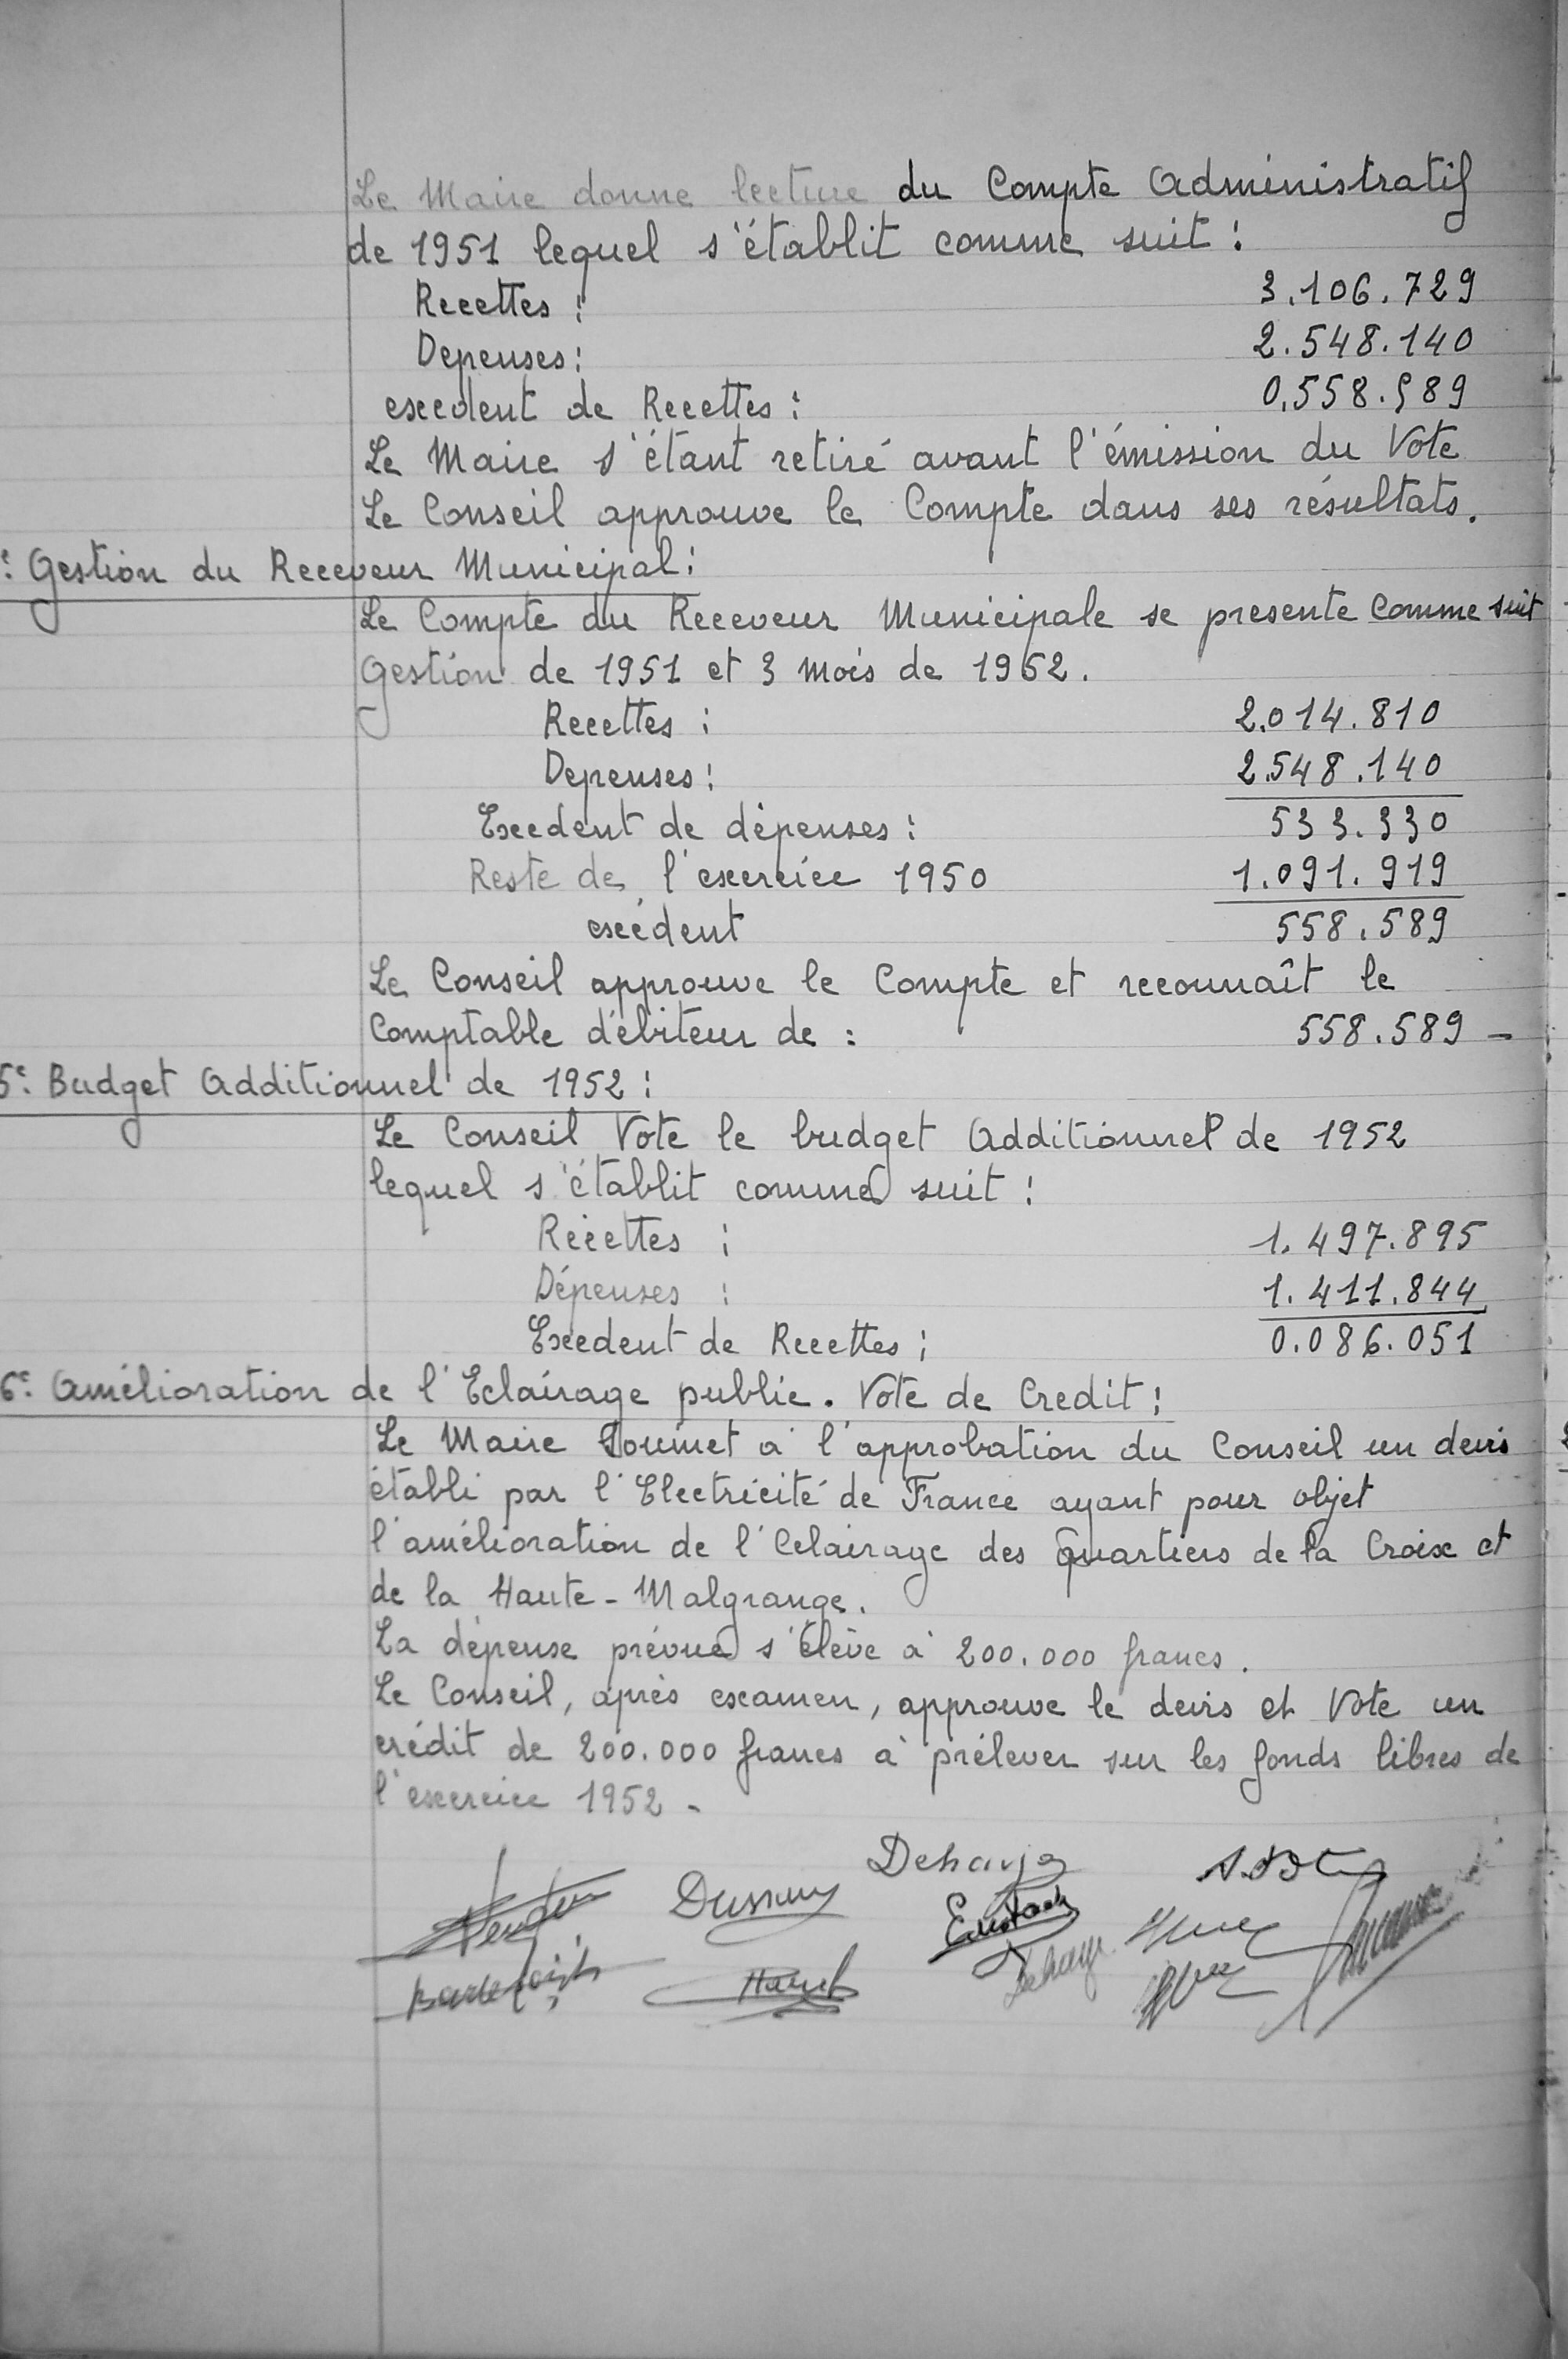 Le Maire donne lecture du Compte Administratif
de 1951 lequel s'établit comme suit :
Recettes : 3.106.729
Depenses : 2.548.140
excedent de Recettes : 0.558.589
Le Maire s'étant retiré avant l'émission du Vote
Le Conseil approuve le Compte dans ses résultats.
: Gestion du Receveur Municipal :
Le Compte du Receveur Municipale se presente comme suit
Gestion de 1951 et 3 mois de 1952.
Recettes : 2.014.810
Depenses : 2.548.140
Excedent de dépenses : 533.330
Reste de l'exercice 1950 1.091.919
excédent 558.589
Le Conseil approuve le Compte et reconnaît le
Comptable débiteur de : 558.589 -
5e: Budget Additionnel de 1952 :
Le Conseil Vote le budget Additionnel de 1952
lequel s'établit comme suit :
Recettes : 1.497.895
Dépenses : 1.411.844
Excedent de Recettes : 0.086.051
6e: Amélioration de l'Eclairage public. Vote de Credit :
Le Maire Soumet à l'approbation du Conseil un devis
établi par l'Electricité de France ayant pour objet
l'amélioration de l'Eclairage des quartiers de la Croix et
de la Haute-Malgrange.
La dépense prévue s'élève à 200.000 francs.
Le Conseil, après examen, approuve le devis et Vote un
crédit de 200.000 francs à prélever sur les fonds libres de
l'exercice 1952 -
Dehaye
Eustach
Dehaye